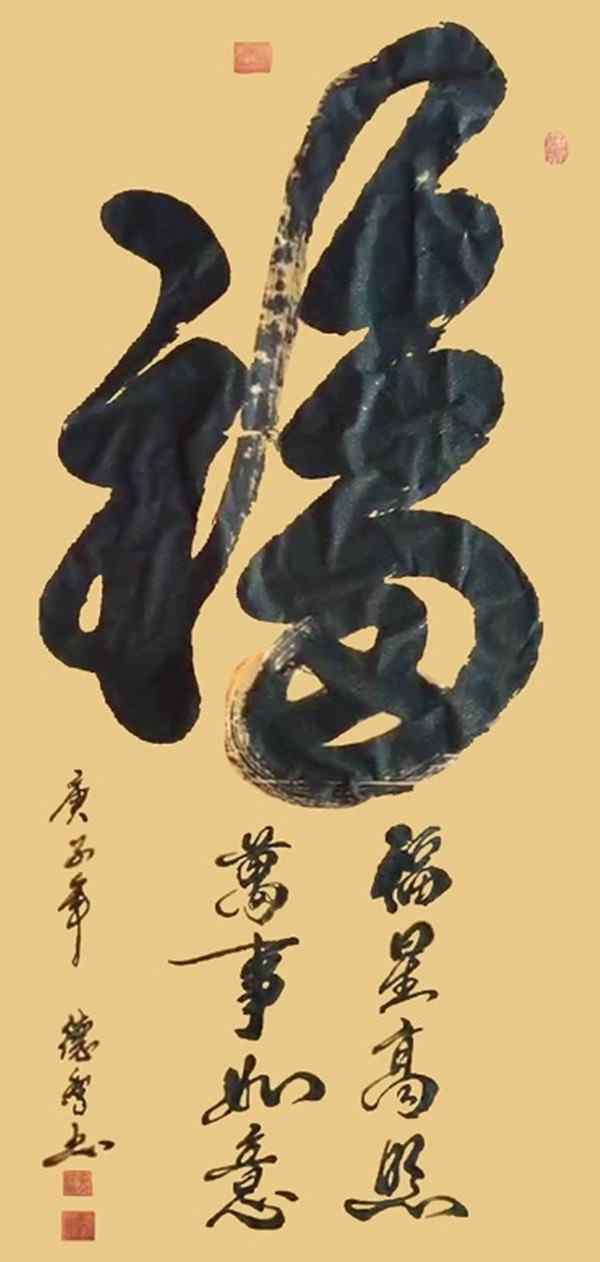 福
福星高照
萬事如意
庚子年 德秀书